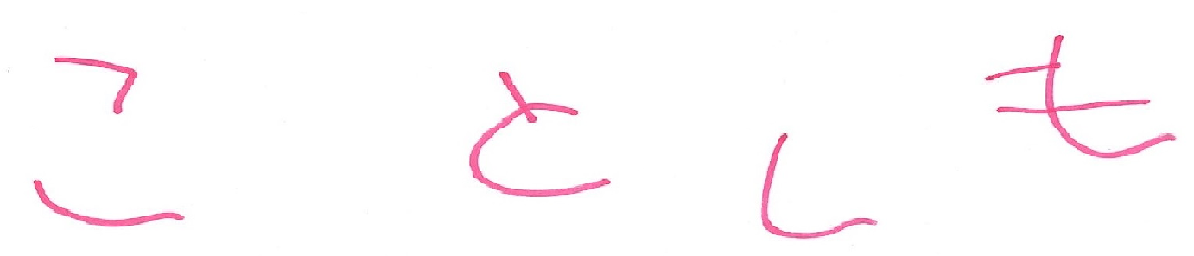 ことしも